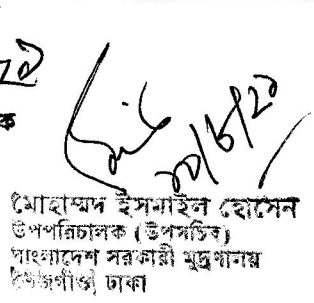 ক
২০/৮/২০
মোহাম্মদ ইসমাইল হোসেন
উপপরিচালক (উপসচিব)
বাংলাদেশ সরকারী মুদ্রণালয়
তেজগাঁও, ঢাকা